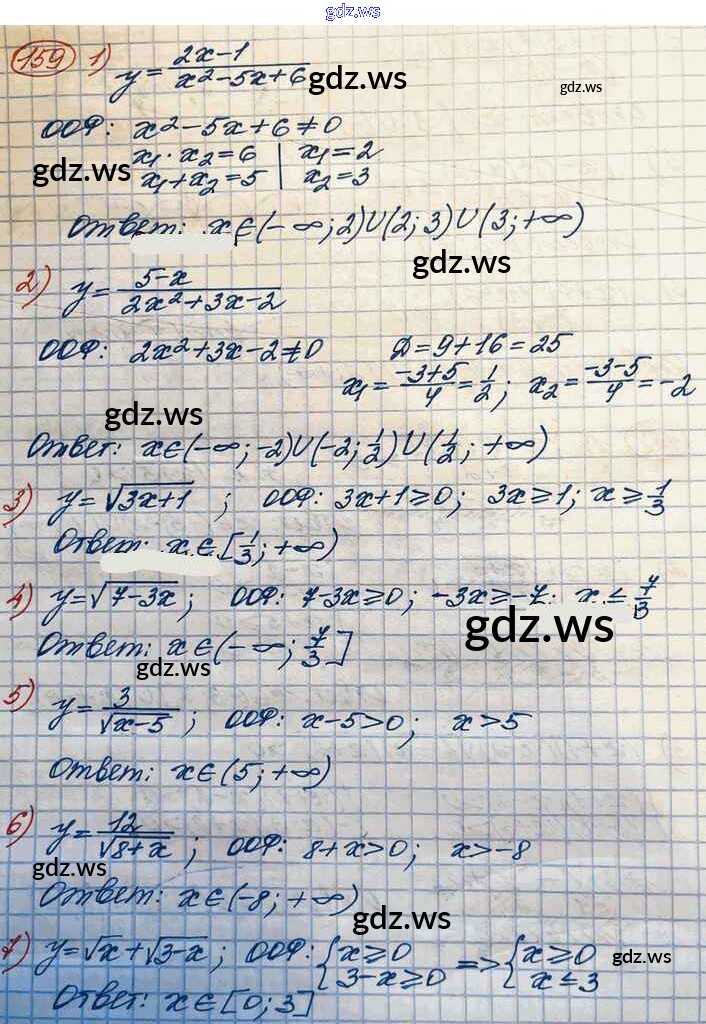 gdz.ws
159 1) y = (2x-1)/(x²-5x+6) gdz.ws gdz.ws
ООФ: x²-5x+6≠0
gdz.ws x₁·x₂=6 | x₁=2
x₁+x₂=5 | x₂=3
Ответ: x∈(-∞;2)∪(2;3)∪(3;+∞)
gdz.ws
2) y = (5-x)/(2x²+3x-2)
ООФ: 2x²+3x-2≠0 Д=9+16=25
x₁=(-3+5)/4=1/2; x₂=(-3-5)/4=-2
gdz.ws
Ответ: x∈(-∞;-2)∪(-2;1/2)∪(1/2;+∞)
3) y=√(3x+1); ООФ: 3x+1≥0; 3x≥1; x≥1/3
Ответ: x∈[1/3;+∞)
4) y=√(7-3x); ООФ: 7-3x≥0; -3x≥-7; x≤7/3
gdz.ws
Ответ: x∈(-∞;7/3]
gdz.ws
5) y=3/√(x-5); ООФ: x-5>0; x>5
Ответ: x∈(5;+∞)
6) y=12/√(8+x); ООФ: 8+x>0; x>-8
gdz.ws
Ответ: x∈(-8;+∞)
gdz.ws
7) y=√x+√(3-x); ООФ: {x≥0 3-x≥0 => {x≥0 x≤3 gdz.ws
Ответ: x∈[0;3]